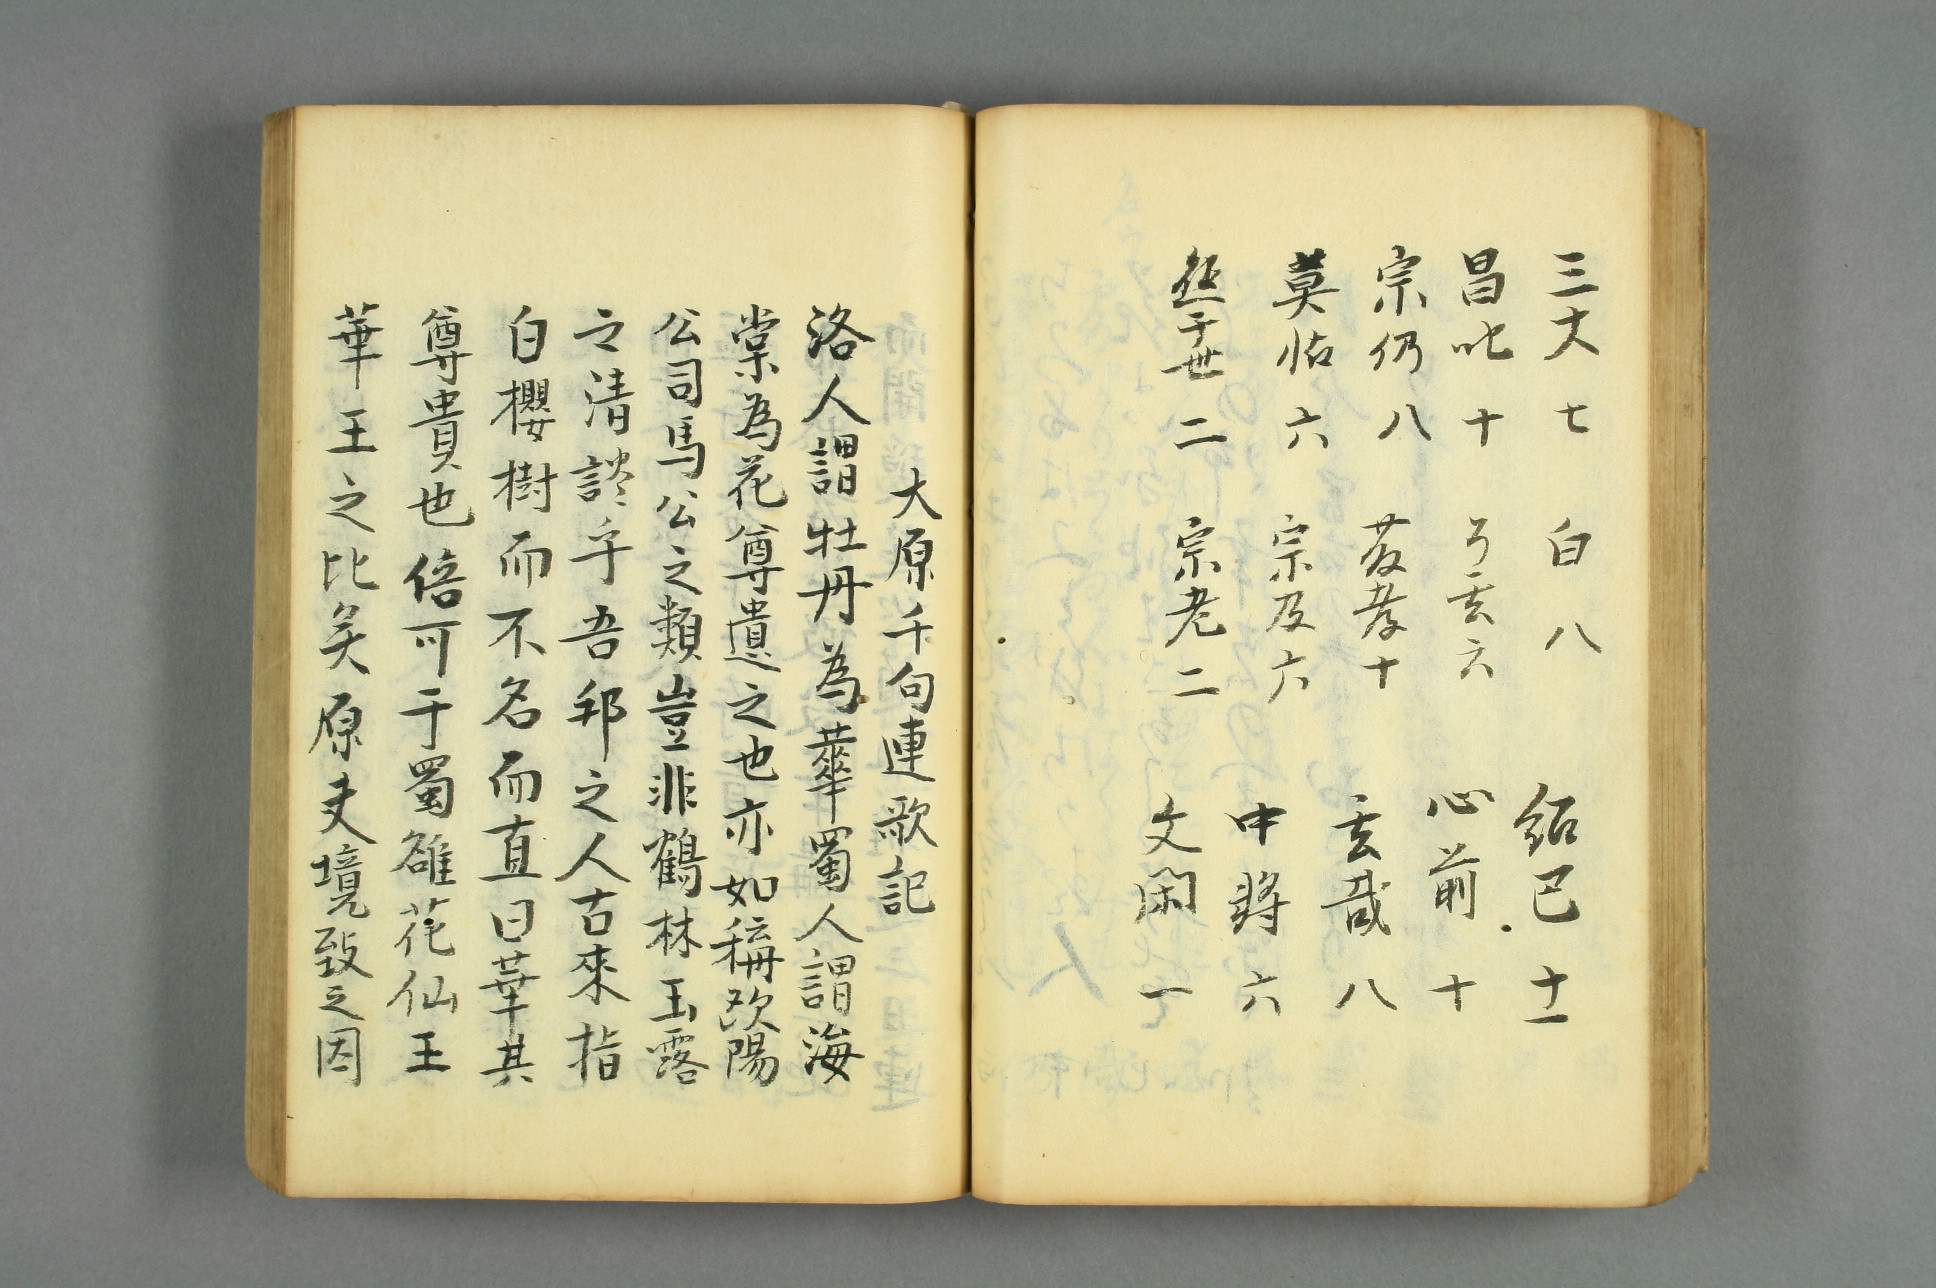 三丈 七 白 八 紹巴 十一
昌叱 十 弓玄 六 心前 十
宗仍 八 藤孝 十 玄哉 八
莫怙 六 宗及 六 中將 六
二 宗老 二 文閑 一
大原千句連歌記
洛人謂牡丹為華蜀人謂海
棠為花尊遺之也亦如稱欧陽
公司馬公之類豈非鶴林玉露
之清談乎吾邦之人古來指
白櫻樹而不名而直曰華其
尊貴也倍可于蜀雒花仙王
華王之比矣原夫境致之因